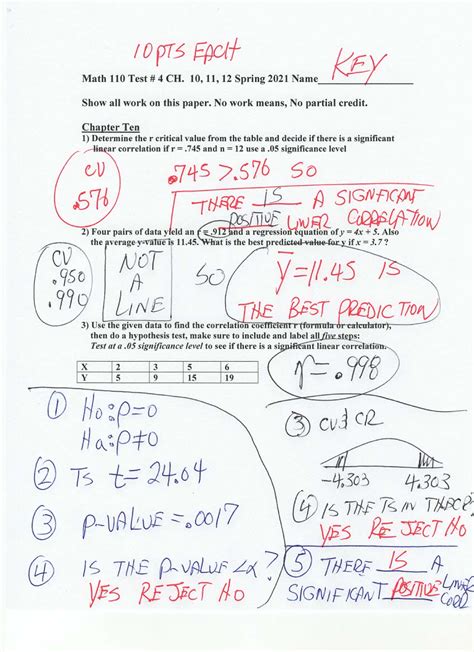 10 PTS EACH
KEY
Math 110 Test # 4 CH. 10, 11, 12 Spring 2021 Name
Show all work on this paper. No work means, No partial credit.
Chapter Ten
1) Determine the r critical value from the table and decide if there is a significant
linear correlation if r = .745 and n = 12 use a .05 significance level
CV
.576
.745 > .576 SO
THERE IS A SIGNIFICANT
POSITIVE LINER CORRELATION
2) Four pairs of data yield an r = .912 and a regression equation of y = 4x + 5. Also
the average y-value is 11.45. What is the best predicted value for y if x = 3.7 ?
CV
.950
.990
NOT
A
LINE
SO
y̅=11.45 IS
THE BEST PREDICTION
3) Use the given data to find the correlation coefficient r (formula or calculator),
then do a hypothesis test, make sure to include and label all five steps:
Test at a .05 significance level to see if there is a significant linear correlation.
X 2 3 5 6
Y 5 9 15 19
r=.998
① Ho:ρ=0
Ha:ρ≠0
② TS t=24.04
③ P-VALUE=.0017
④ IS THE P-VALUE <α?
YES REJECT HO
③ CV & CR
-4.303 4.303
④ IS THE TS IN THE CR?
YES REJECT HO
⑤ THERE IS A
SIGNIFICANT POSITIVE LINEAR
CORR